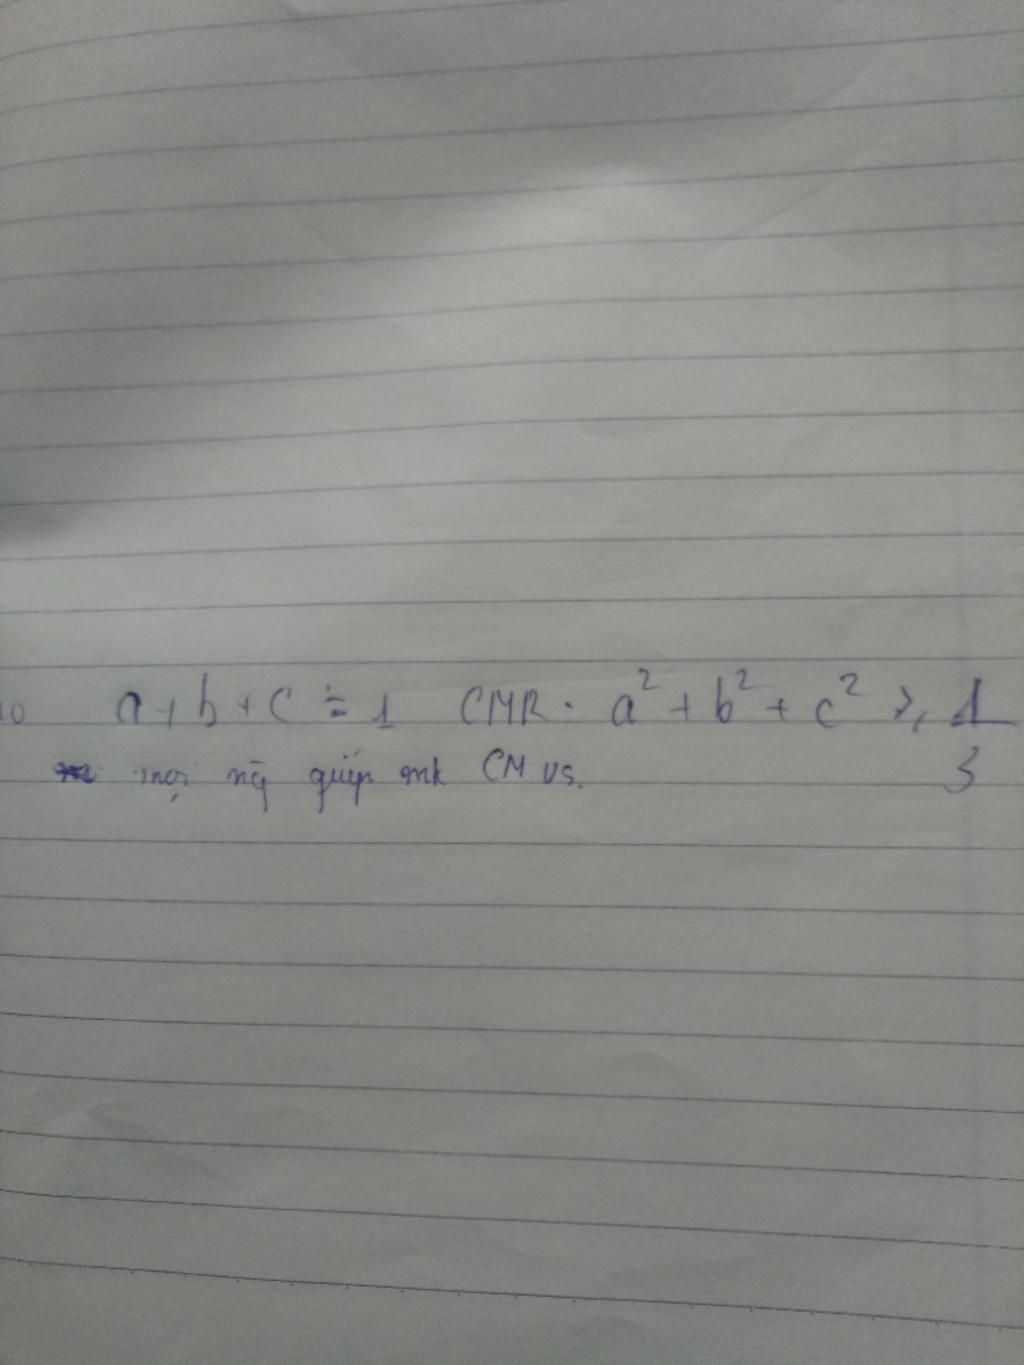 a + b + c = 1 CMR. a² + b² + c² ≥ 1/3
mọi ng giúp mk CM vs.